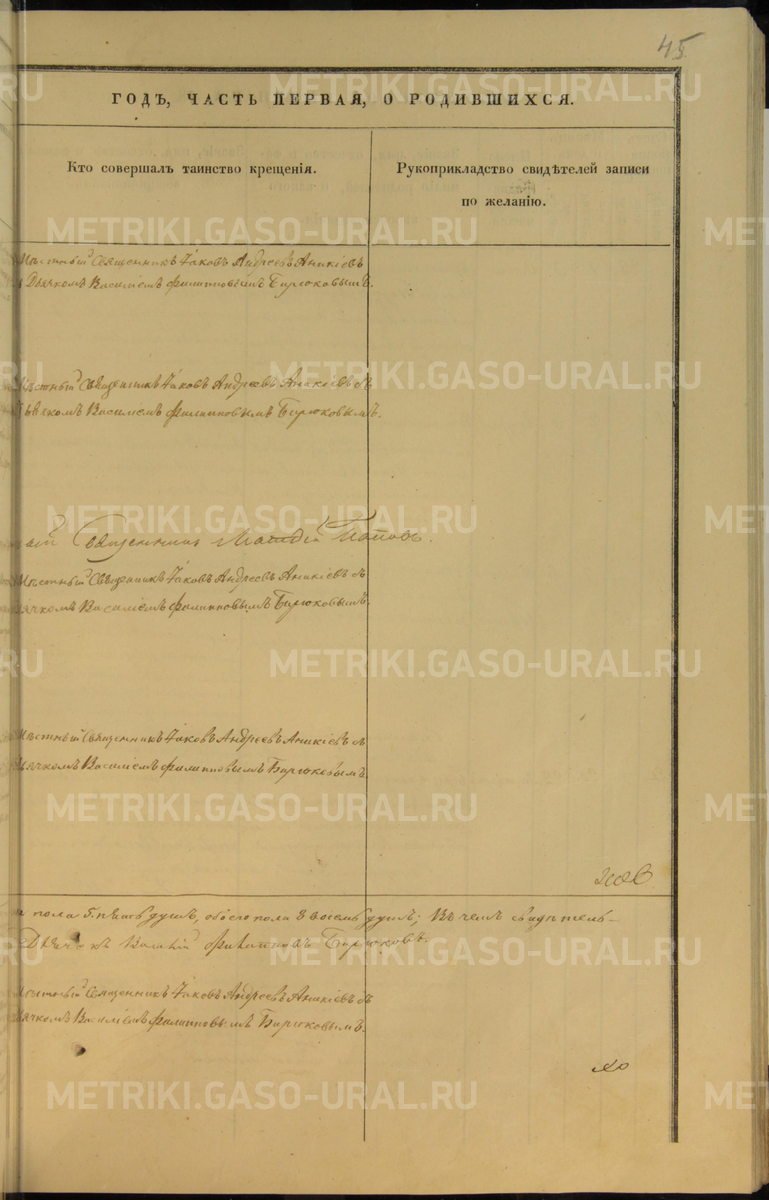 45
ГОДЪ, ЧАСТЬ ПЕРВАЯ, О РОДИВШИХСЯ.
Кто совершалъ таинство крещенія.
Рукоприкладство свидѣтелей записи
по желанію.
Мѣстный Священникъ Іаковъ Андреевъ Аникіевъ
Дьячкомъ Василіемъ Филипповымъ Бирюковымъ.
Мѣстный Священникъ Іаковъ Андреевъ Аникіевъ съ
Дьячкомъ Василіемъ Филипповымъ Бирюковымъ.
Священникъ Поповъ.
Мѣстный Священникъ Іаковъ Андреевъ Аникіевъ съ
Дьячкомъ Василіемъ Филипповымъ Бирюковымъ.
Мѣстный Священникъ Іаковъ Андреевъ Аникіевъ съ
Дьячкомъ Василіемъ Филипповымъ Бирюковымъ.
пола 5. пять душъ, обоего пола 8 восемь душъ; Въ чемъ свидѣтель-
Дьячекъ Василій Филипповъ Бирюковъ.
Мѣстный Священникъ Іаковъ Андреевъ Аникіевъ съ
Дьячкомъ Василіемъ Филипповымъ Бирюковымъ.
METRIKI.GASO-URAL.RU